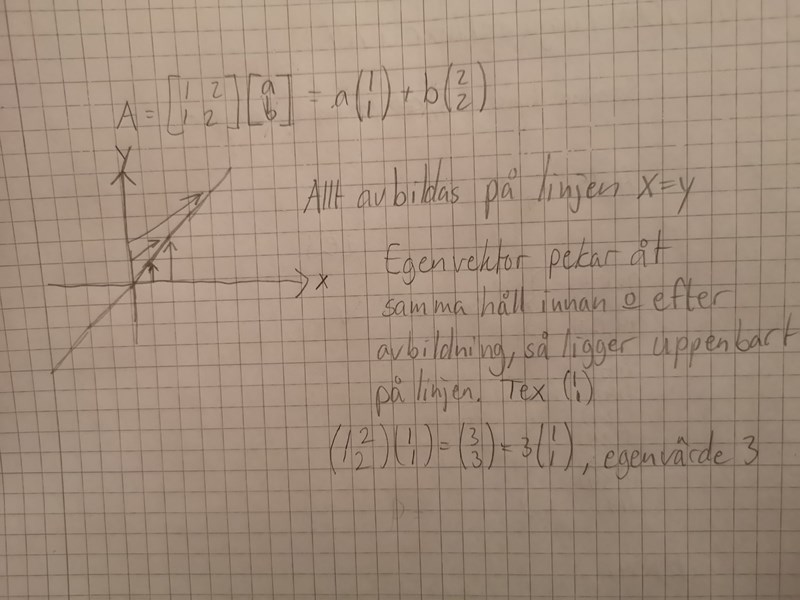 A = [1 2 1 2] [a b] = a(1 1) + b(2 2)
y
Allt avbildas på linjen x=y
x
Egenvektor pekar åt
samma håll innan o efter
avbildning, så ligger uppenbart
på linjen. Tex (1 1)
(1 2 1 2)(1 1) = (3 3) = 3(1 1), egenvärde 3